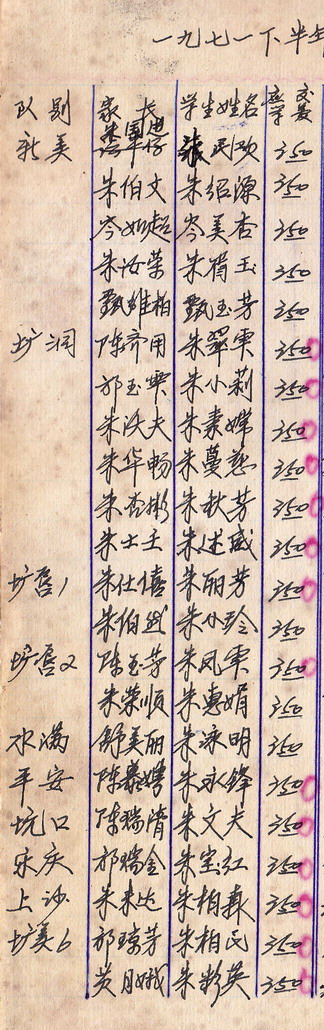 一九七一下半年
队别 家长 学生姓名 应交学费
新美 张民欢 350
朱伯文 朱绍源 350
岑如超 岑美杏 350
朱汝荣 朱眉玉 350
甄维柏 甄玉芳 350
圹润 陈齐用 朱翠雲 350
邝玉雲 朱小莉 350
朱沃夫 朱素嫦 350
朱华畅 朱蔓慈 350
朱杏彬 朱秋芳 350
朱士士 朱述威 350
圹唇1 朱仕僖 朱丽芳 350
朱伯 朱小玲 350
圹唇2 陈玉芬 朱凤雲 350
朱荣顺 朱惠娟 350
水满 舒美丽 朱泳明 350
平安 陈慕娉 朱永锋 350
坑口 陈瑞清 朱文夫 350
乐庆 邝瑞金 朱宝红 350
上沙 朱来达 朱柏森 350
圹美6 邝琼芳 朱柏民 350
黄月娥 朱彩英 350